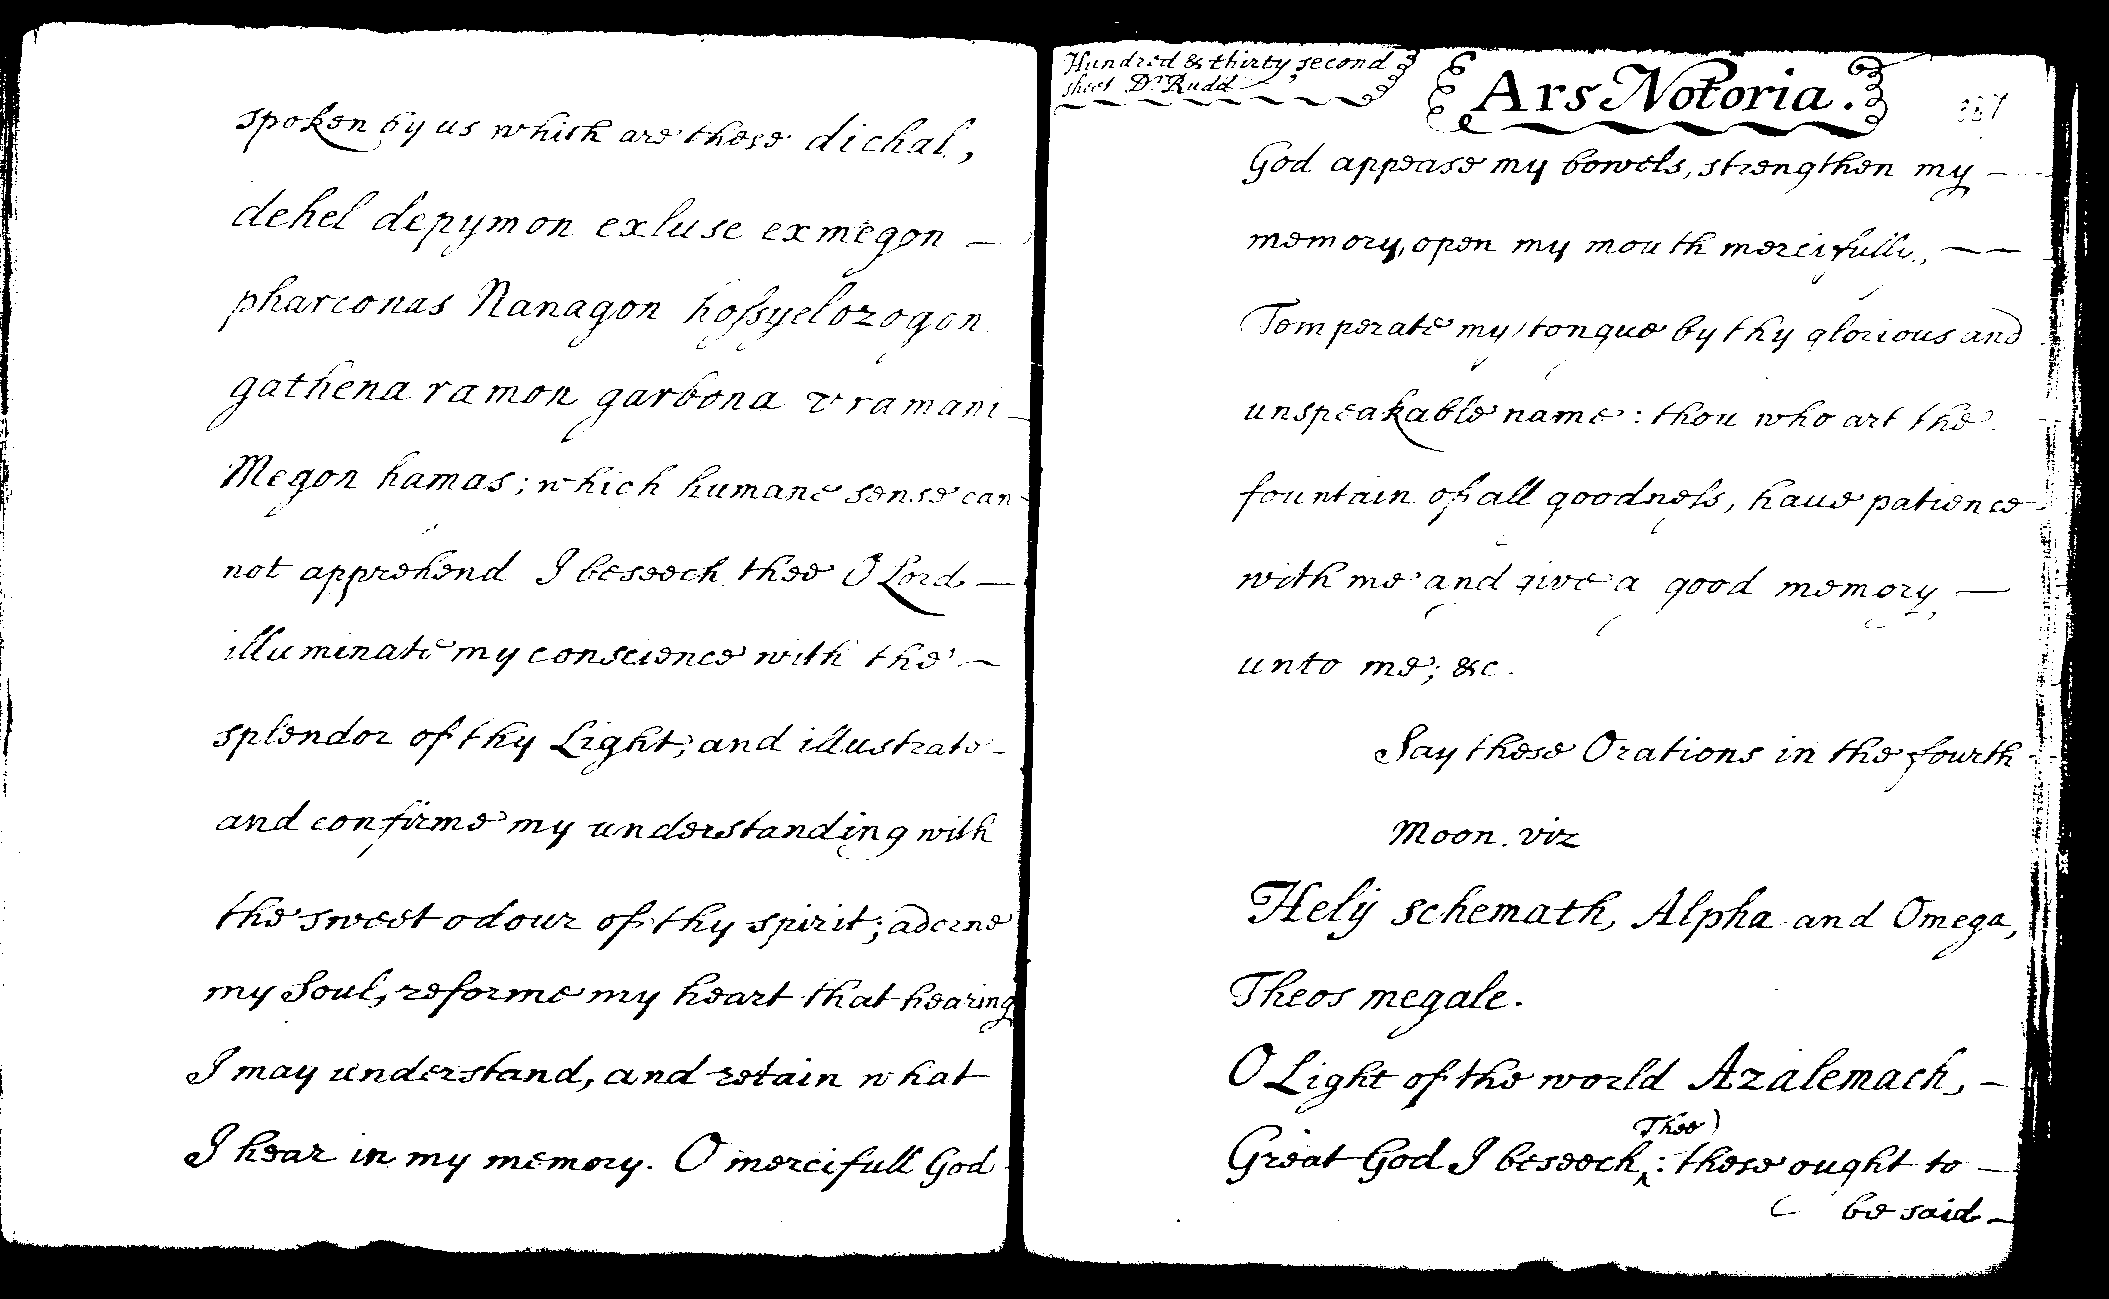 spoken by us which are these dichal,
dehel depymon exluse exmegon —
pharconas Nanagon hossyelozogon
gathena ramon garbona vramani —
Megon hamas; which humane sense can-
not apprehend I beseech thee O Lord —
illuminate my conscience with the —
splendor of thy Light; and illustrate —
and confirme my understanding with
the sweet odour of thy spirit; adorne
my Soul, reforme my heart that hearing
I may understand, and retain what
I hear in my memory. O mercifull God
Hundred & thirty second
sheet Dr Rudd
Ars Notoria.
God appease my bowels, strengthen my —
memory, open my mouth mercifully, — —
Temperate my tongue by thy glorious and
unspeakable name: thou who art the
fountain of all goodness, haue patience
with me and give a good memory —
unto me; &c.
Say these Orations in the fourth
Moon. viz
Hely schemath, Alpha and Omega,
Theos megale.
O Light of the world Azalemach, —
Thee
Great God I beseech ‸: these ought to —
be said —